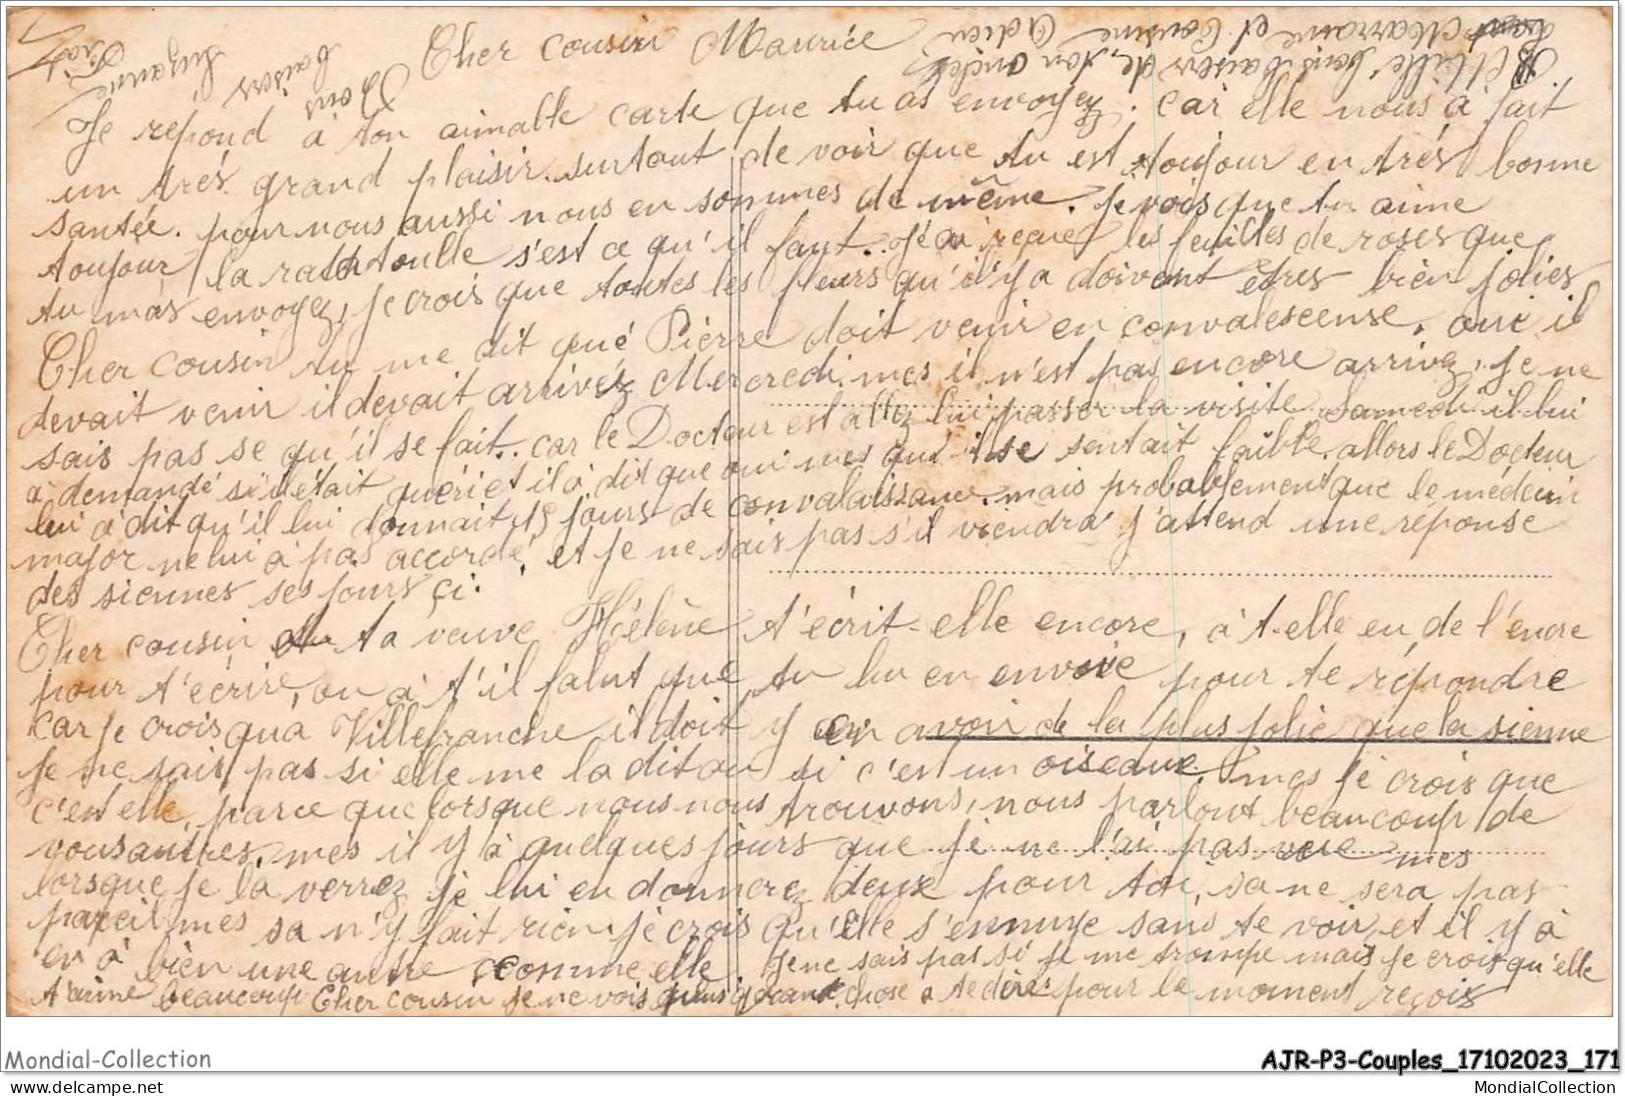 Cher cousin Maurice
Je répond à ton aimable carte que tu as envoyez. car elle nous à fait
un trés grand plaisir. surtout de voir que tu est toujour en trés bonne
santée. pour nous aussi nous en sommes de même. Je vois que tu aime
toujour la ratatoulle s'est ce qu'il faut.. Jé ai reçue les feuilles de roses que
tu mas envoyez, je crois que toutes les fleurs qu'il y a doivent êtres bien jolies
Cher cousin tu me dit que Pièrre doit venir en convalescense. oui il
devait venir il devait arrivéz Mercredi. mes il n'est pas encore arrivez, je ne
sais pas se qu'il se fait.. car le Docteur est allez lui passer la visite Samedi il lui
à demandé si c'était quéri et il à dit que oui mes que il se sentait faible. allors le Docteur
lui à dit qu'il lui donnait 15 jours de convalaissance. mais probablement que le médecin
major ne lui à pas accordé, et je ne sais pas s'il viendra j'attend une réponse
des siennes ses jours çi.
Cher cousin ta veuve Hélène t'écrit-elle encore, à t-elle eu de l'encre
pour t'écrire, ou à t'il falut que tu lui en envoie pour te répondre
car je crois qua Villefranche il doit y en avoir de la plus jolie que la sienne
je ne sais pas si elle me la dit ou si c'est un oiseaux, mes je crois que
c'est elle, parce que lorsque nous nous trouvons, nous parlont beaucoup de
vous autres, mes il y à quelques jours que je ne l'ai pas vue mes
lorsque je la verrez je lui en donnerez deux pour toi, sa ne sera pas
pareil mes sa n'y fait rien. je crois qu'elle s'ennuye sans te voir, et il y à
en à bien une autre comme elle. Je ne sais pas si je me trompe mais je crois qu'elle
t'aime beaucoup Cher cousin je ne vois plus grand chose a te dire pour le moment reçois
Mille bons baisers de ton oncle
Marraine et Cousine Adieu
Bons
baisers
Suzanne
Mondial-Collection
AJR-P3-Couples_17102023_171
MondialCollection